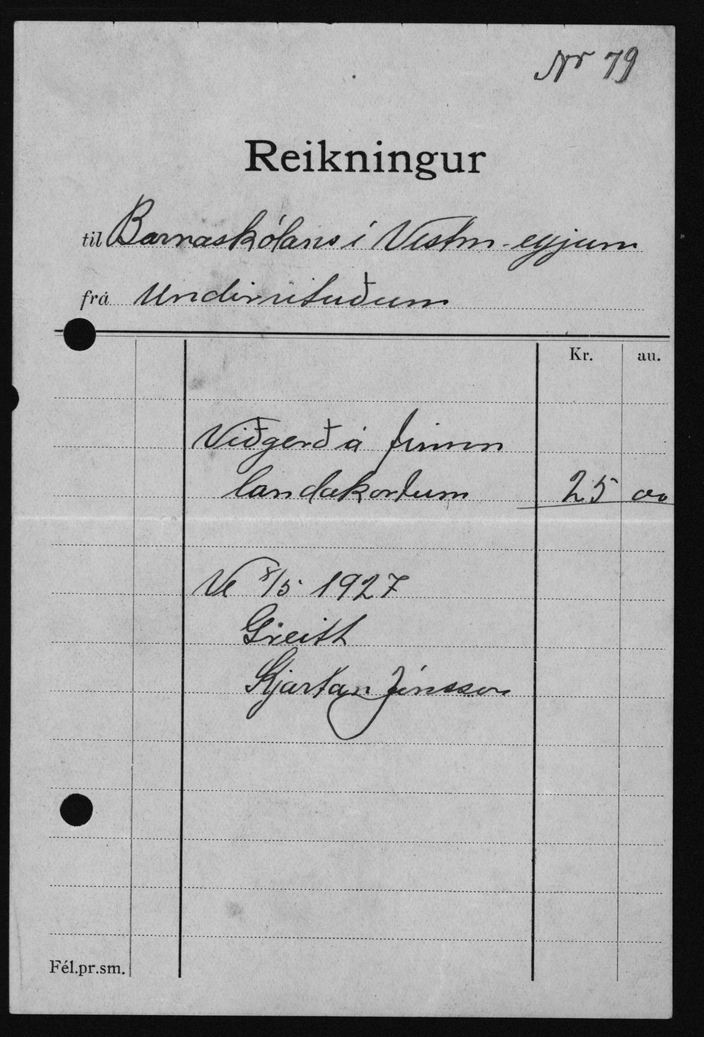 Nr 79
Reikningur
til Barnaskólans í Vestm-eyjum
frá Undirrituðum
Kr. au.
Viðgerð á fimm
landakortum 25 00
Ve 8/5 1927
Greitt
Kjartan Jónsson
Fél.pr.sm.